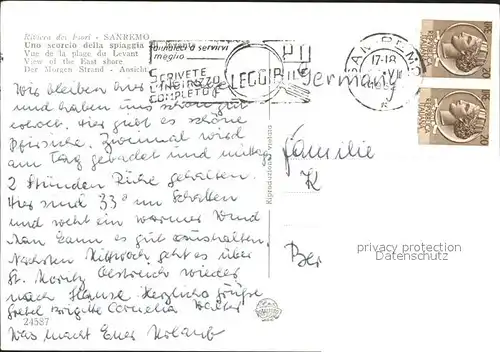 Riviera dei Fiori - SANREMO
Uno scorcio della spiaggia di levante
Vue de la plage du Levant
View of the East shore
Der Morgen Strand - Ansicht
aiutateci a servirvi
meglio
SCRIVETE
L'INDIRIZZO
COMPLETO
LEGGIBILE
SANREMO
17-18
Germania
Wir bleiben hier
und haben uns schon gut
erholt. Hier gibt es schöne
Pfirsiche. Zweimal wird
am Tag gebadet und mittags
2 Stunden Ruhe gehalten.
Hier sind 33° im Schatten
und weht ein warmer Wind
Man kann es gut aushalten.
Nächsten Mittwoch geht es über
St. Moritz Österreich wieder
nach Hause. Herzliche Grüße
Gretel Brigitte Cornelia Walter
Was macht Euer Urlaub
24587
Riproduzione vietata
Familie
K
Ber
privacy protection
Datenschutz